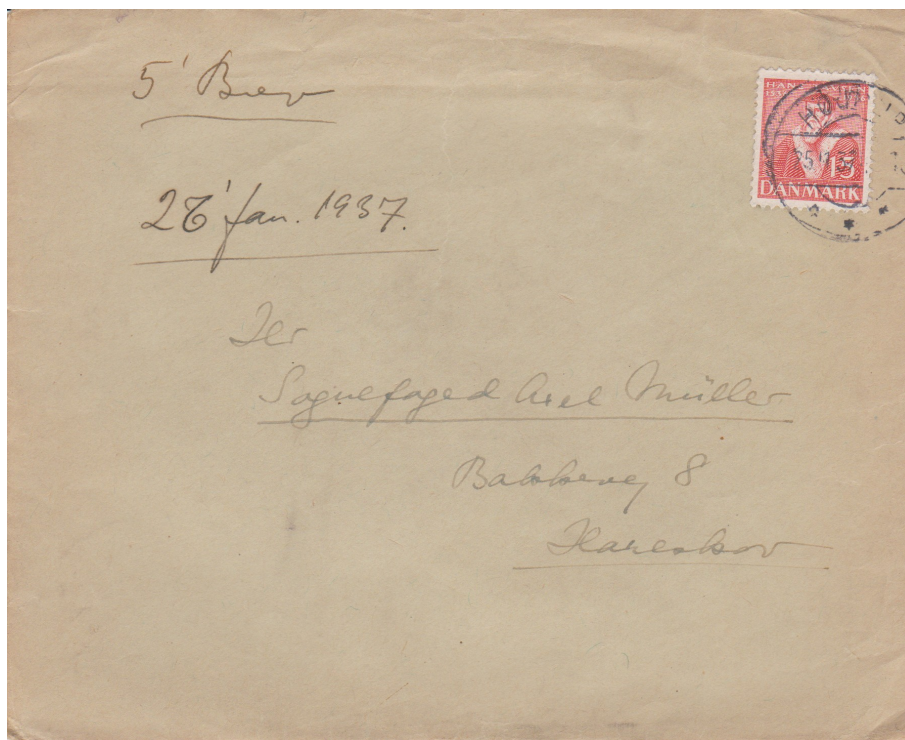 5' Brev
26' Jan. 1937.
DANMARK
15
Hr
Sognefoged Axel Müller
Bakkevej 8
Hareskov